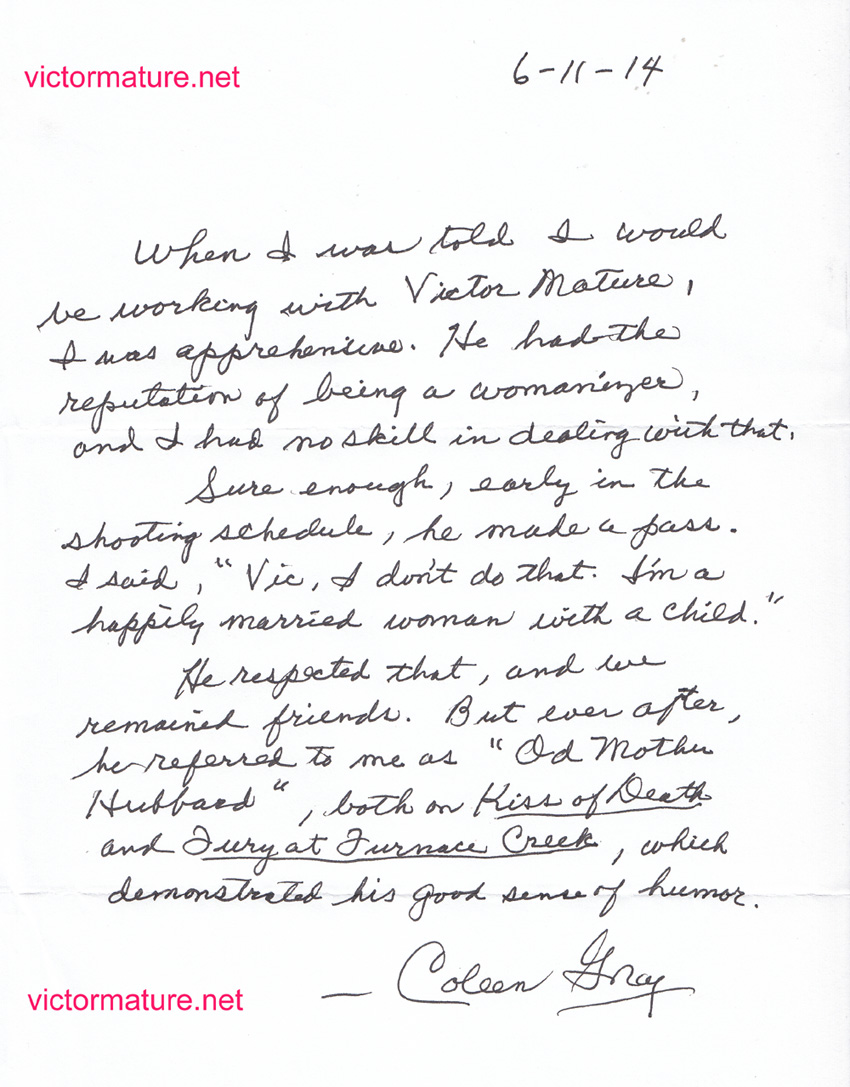 victormature.net
6-11-14
When I was told I would
be working with Victor Mature,
I was apprehensive. He had the
reputation of being a womanizer,
and I had no skill in dealing with that.
Sure enough, early in the
shooting schedule, he made a pass.
I said, "Vic, I don't do that. I'm a
happily married woman with a child."
He respected that, and we
remained friends. But ever after,
he referred to me as "Od Mother
Hubbard", both on Kiss of Death
and Fury at Furnace Creek, which
demonstrated his good sense of humor.
— Coleen Gray
victormature.net